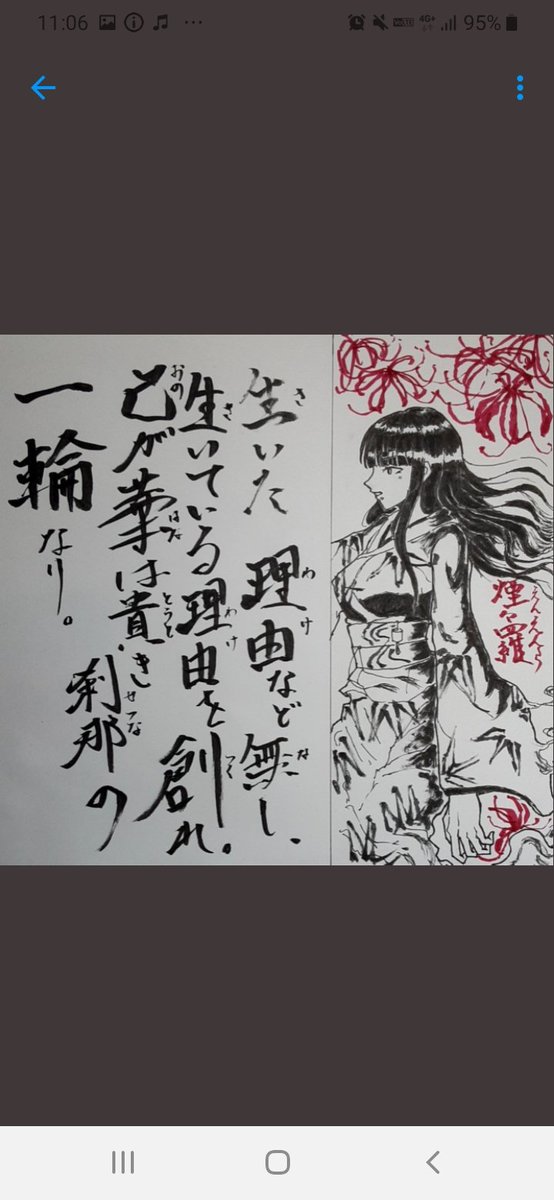 11:06
4G+
95%
煙々羅
えんえんら
生いた 理由など無し、
さ わけ な
生いている理由を創れ。
さ わけ つく
己が華は貴き
おの はな とうと
刹那の
せつな
一輪なり。